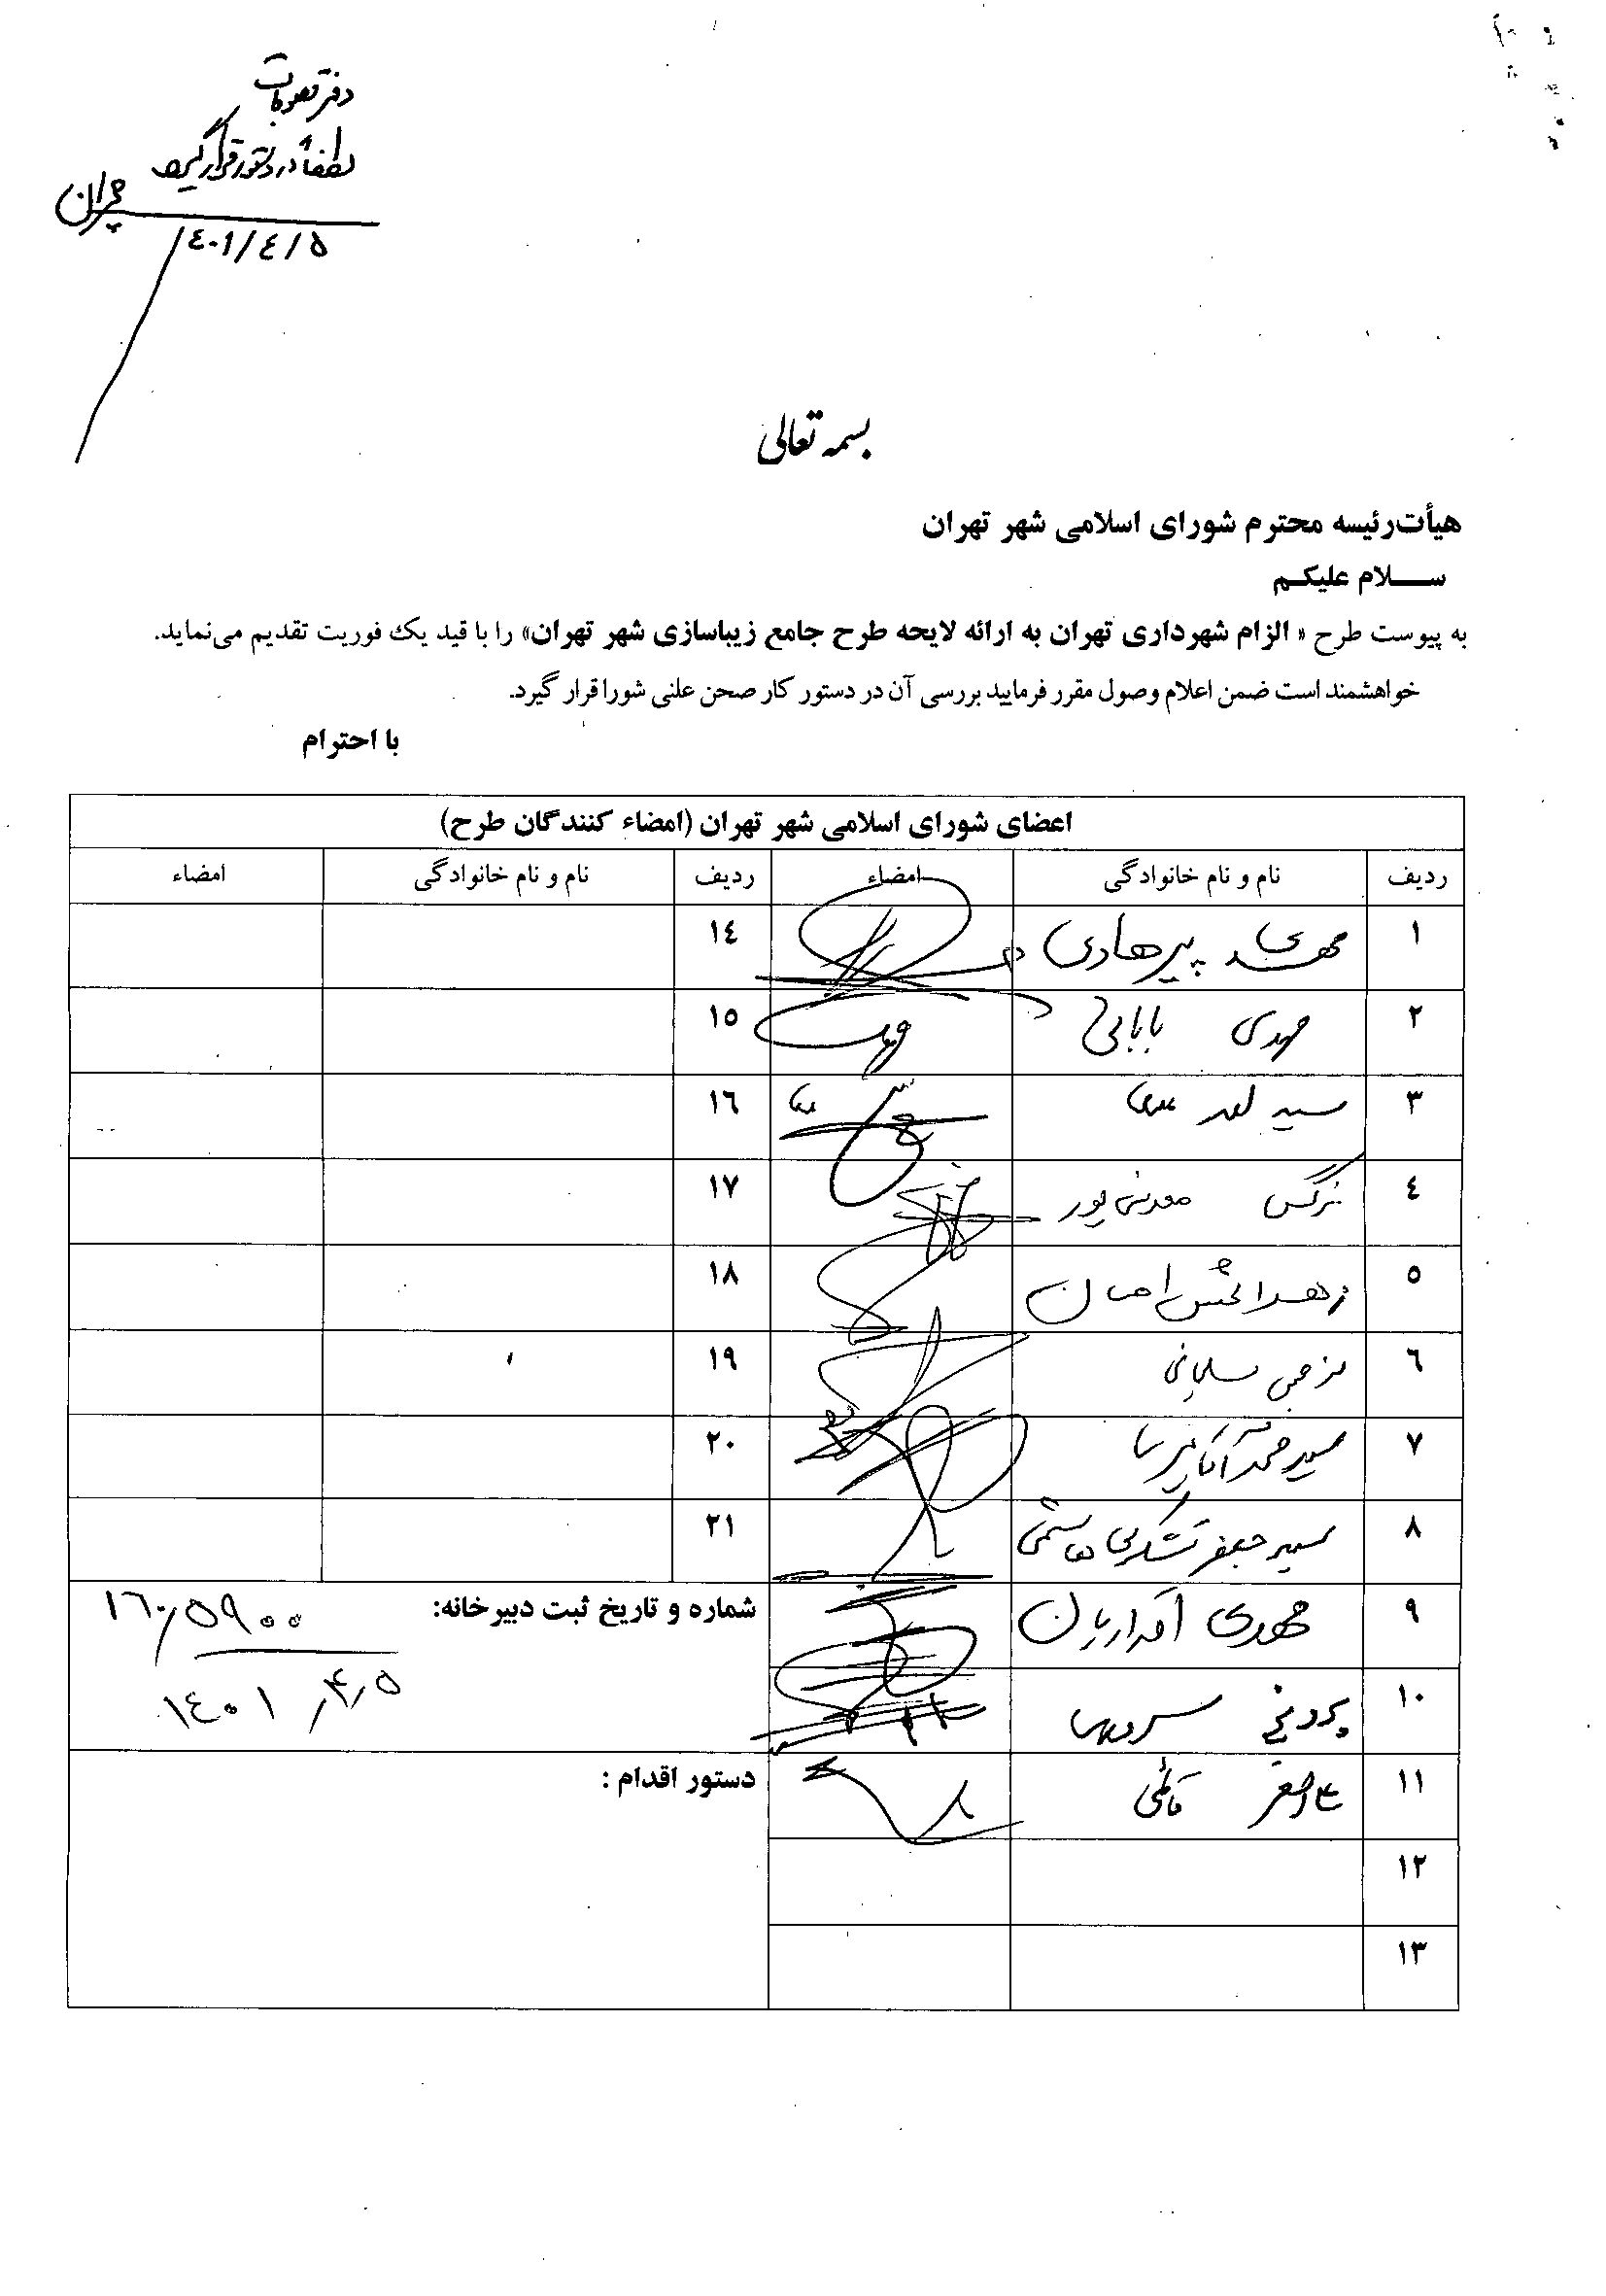 دفتر مصوبات
لطفاً در دستور قرار گیرد
چمران
۱٤۰۱/٤/۵
بسمه تعالی
هیأت‌رئیسه محترم شورای اسلامی شهر تهران
ســـلام علیکـم
به پیوست طرح « الزام شهرداری تهران به ارائه لایحه طرح جامع زیباسازی شهر تهران» را با قید یک فوریت تقدیم می‌نماید.
خواهشمند است ضمن اعلام وصول مقرر فرمایید بررسی آن در دستور کار صحن علنی شورا قرار گیرد.
با احترام
اعضای شورای اسلامی شهر تهران (امضاء کنندگان طرح)
ردیف نام و نام خانوادگی امضاء ردیف نام و نام خانوادگی امضاء
۱ مهدی پیرهادی ۱٤
۲ مهدی بابائی ۱۵
۳ سید احمد علوی ۱٦
٤ نرگس معدنی‌پور ۱۷
۵ ۱۸
٦ سلیمانی ۱۹
۷ سید محمد آقامیری ۲۰
۸ سید جعفر تشکری هاشمی ۲۱
۹ مهدی اقراریان شماره و تاریخ ثبت دبیرخانه: ۱٦۰/۵۹۰۰
۱۰ پروین سروری ۱٤۰۱/۴/۵
۱۱ علی اصغر قائمی دستور اقدام :
۱۲
۱۳